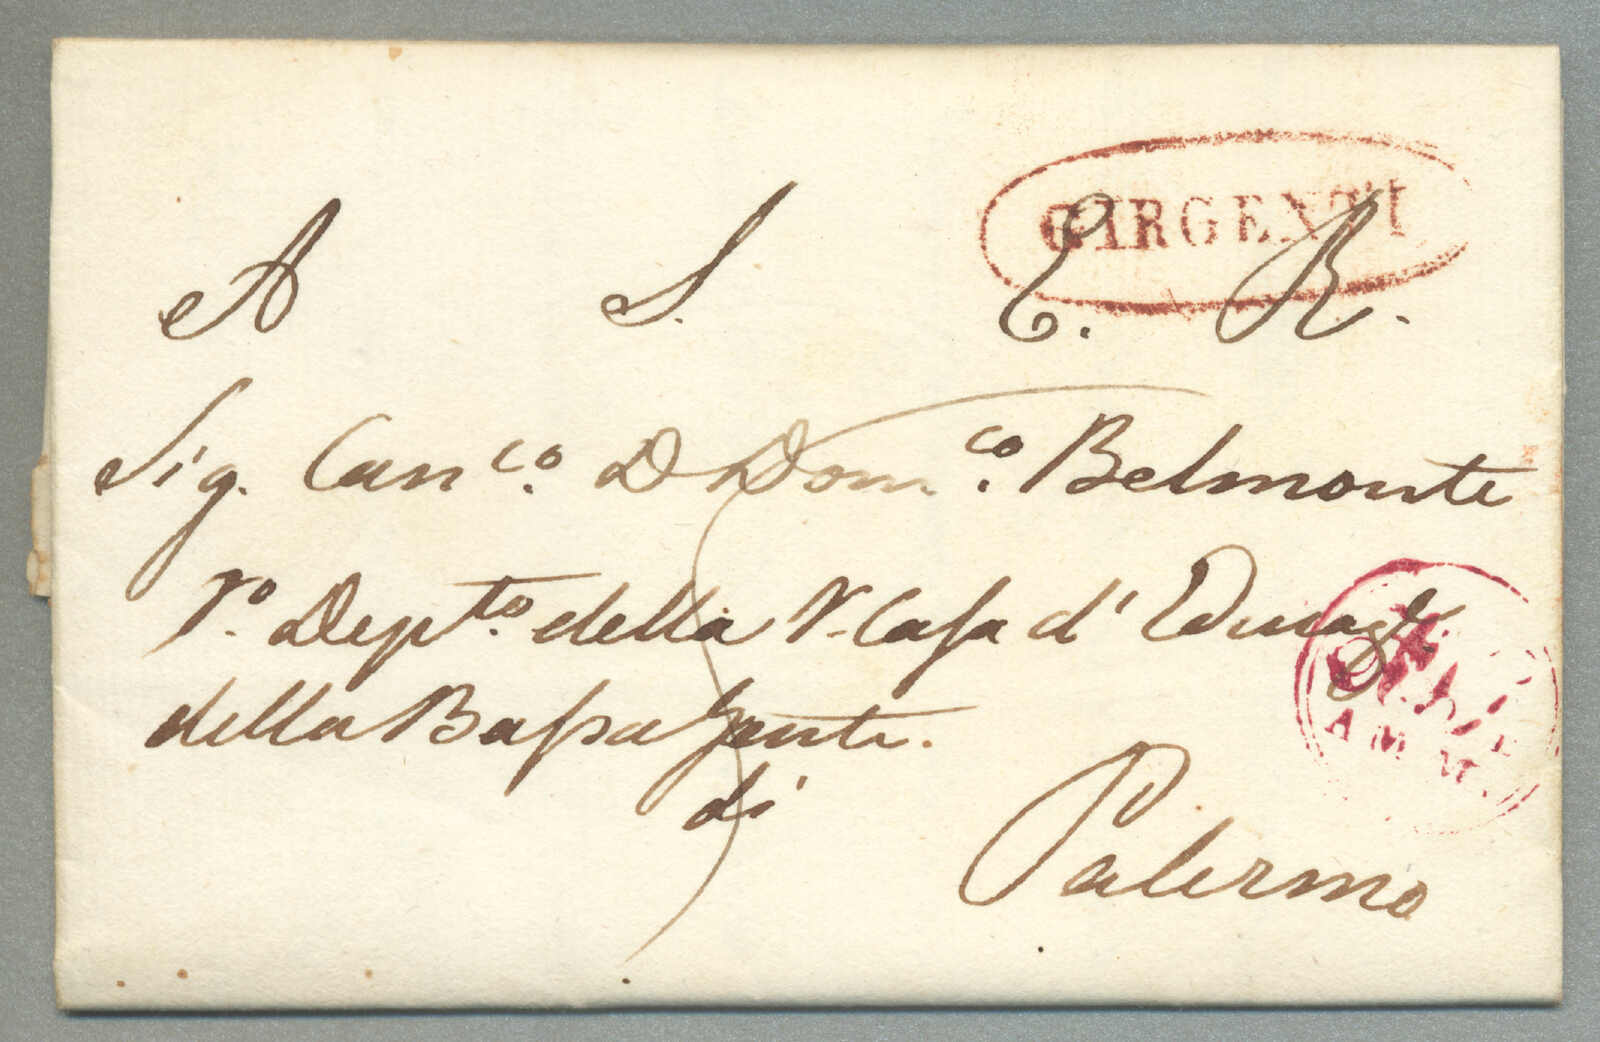 GIRGENTI
A S. E. R.
Sig. Canco. D Domco. Belmonte
Depto. della R. Casa d'Educaze.
della Bassa Gente.
di
Palermo
AMM.